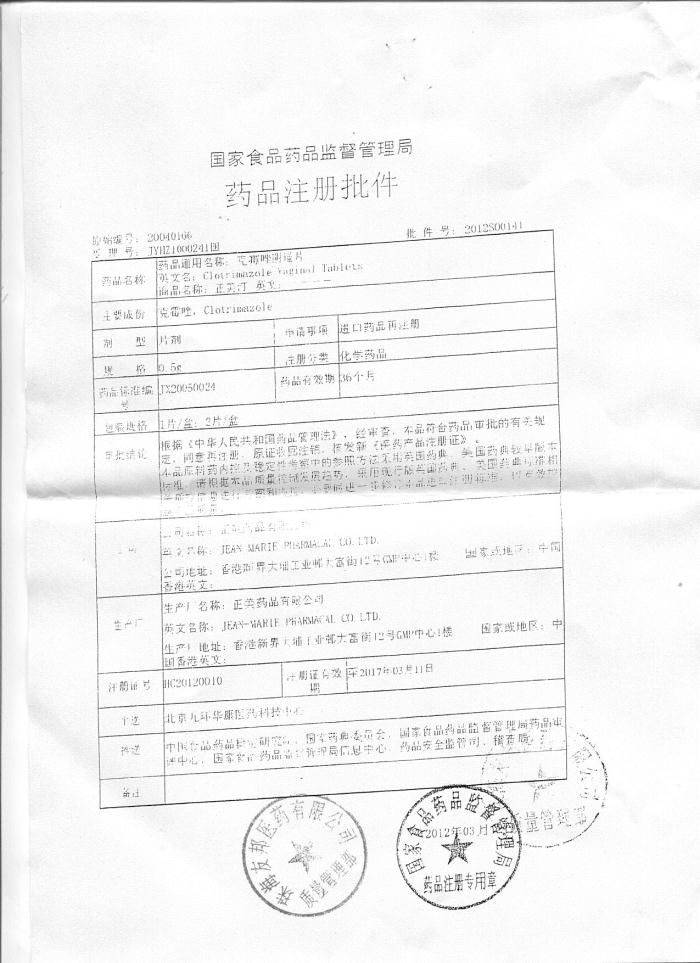 国家食品药品监督管理局
药品注册批件
原始编号：20040166
受理号：JYHZ1000241国
批件号：2012S00141
药品名称
药品通用名称：克霉唑阴道片
英文名：Clotrimazole Vaginal Tablets
商品名称：正美汀 英文：
主要成份
克霉唑，Clotrimazole
剂 型
片剂
申请事项
进口药品再注册
规 格
0.5g
注册分类
化学药品
药品标准编号
JX20050024
药品有效期
36个月
包装规格
1片/盒；2片/盒
审批结论
根据《中华人民共和国药品管理法》，经审查，本品符合药品审批的有关规
定，同意再注册，原证收回注销，核发新《医药产品注册证》。
本品原料药内控及稳定性考察中的参照方法采用英国药典、美国药典较早版本
标准，请根据本品质量控制发展趋势，采用现行版英国药典、美国药典标准相
公司
英文名称：JEAN-MARIE PHARMACAL CO.LTD.
公司地址：香港新界大埔工业邨大富街12号GMP中心1楼 国家或地区：中国
香港英文：
生产厂
生产厂名称：正美药品有限公司
英文名称：JEAN-MARIE PHARMACAL CO.LTD.
生产厂地址：香港新界大埔工业邨大富街12号GMP中心1楼 国家或地区：中
国香港英文：
注册证号
HC20120010
注册证有效期
至2017年03月11日
主送
北京九环华康医药科技中心
抄送
中国食品药品检定研究院，国家药典委员会，国家食品药品监督管理局药品审
评中心，国家食品药品监督管理局信息中心，药品安全监管司，稽查局。
备注
2012年03月
珠海友邦医药有限公司
质量管理部
国家食品药品监督管理局
药品注册专用章
限公司
质量管理部